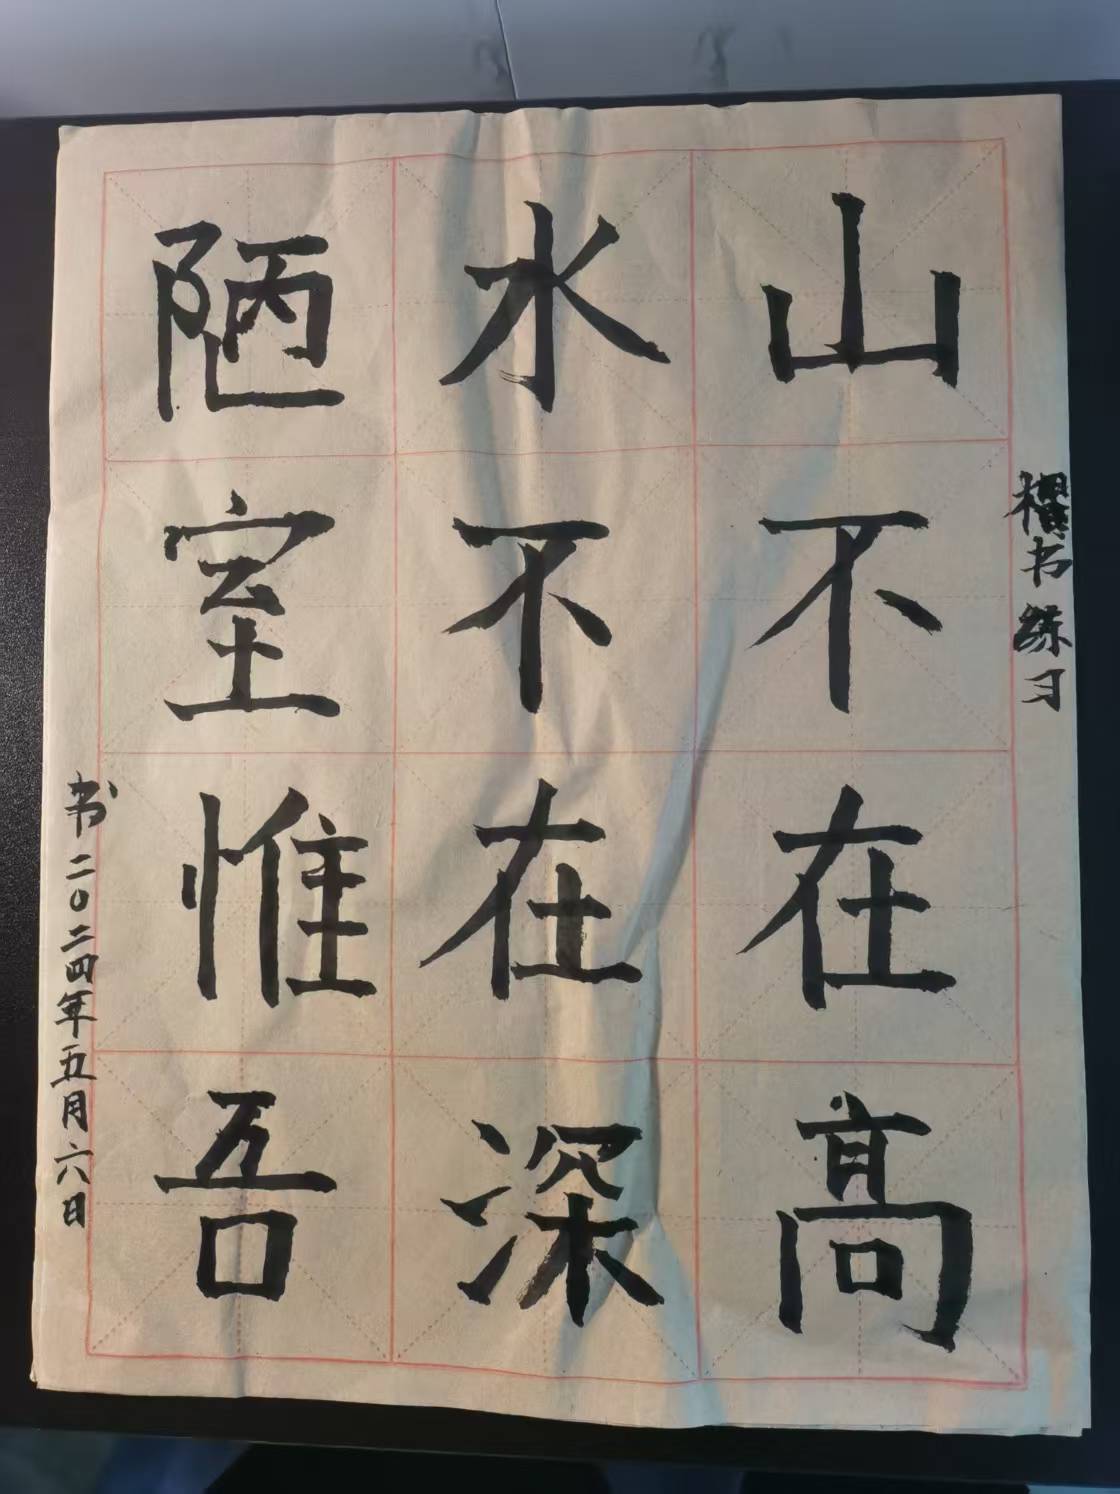 书练习
山不在高
水不在深
陋室惟吾
书二〇二四年五月六日